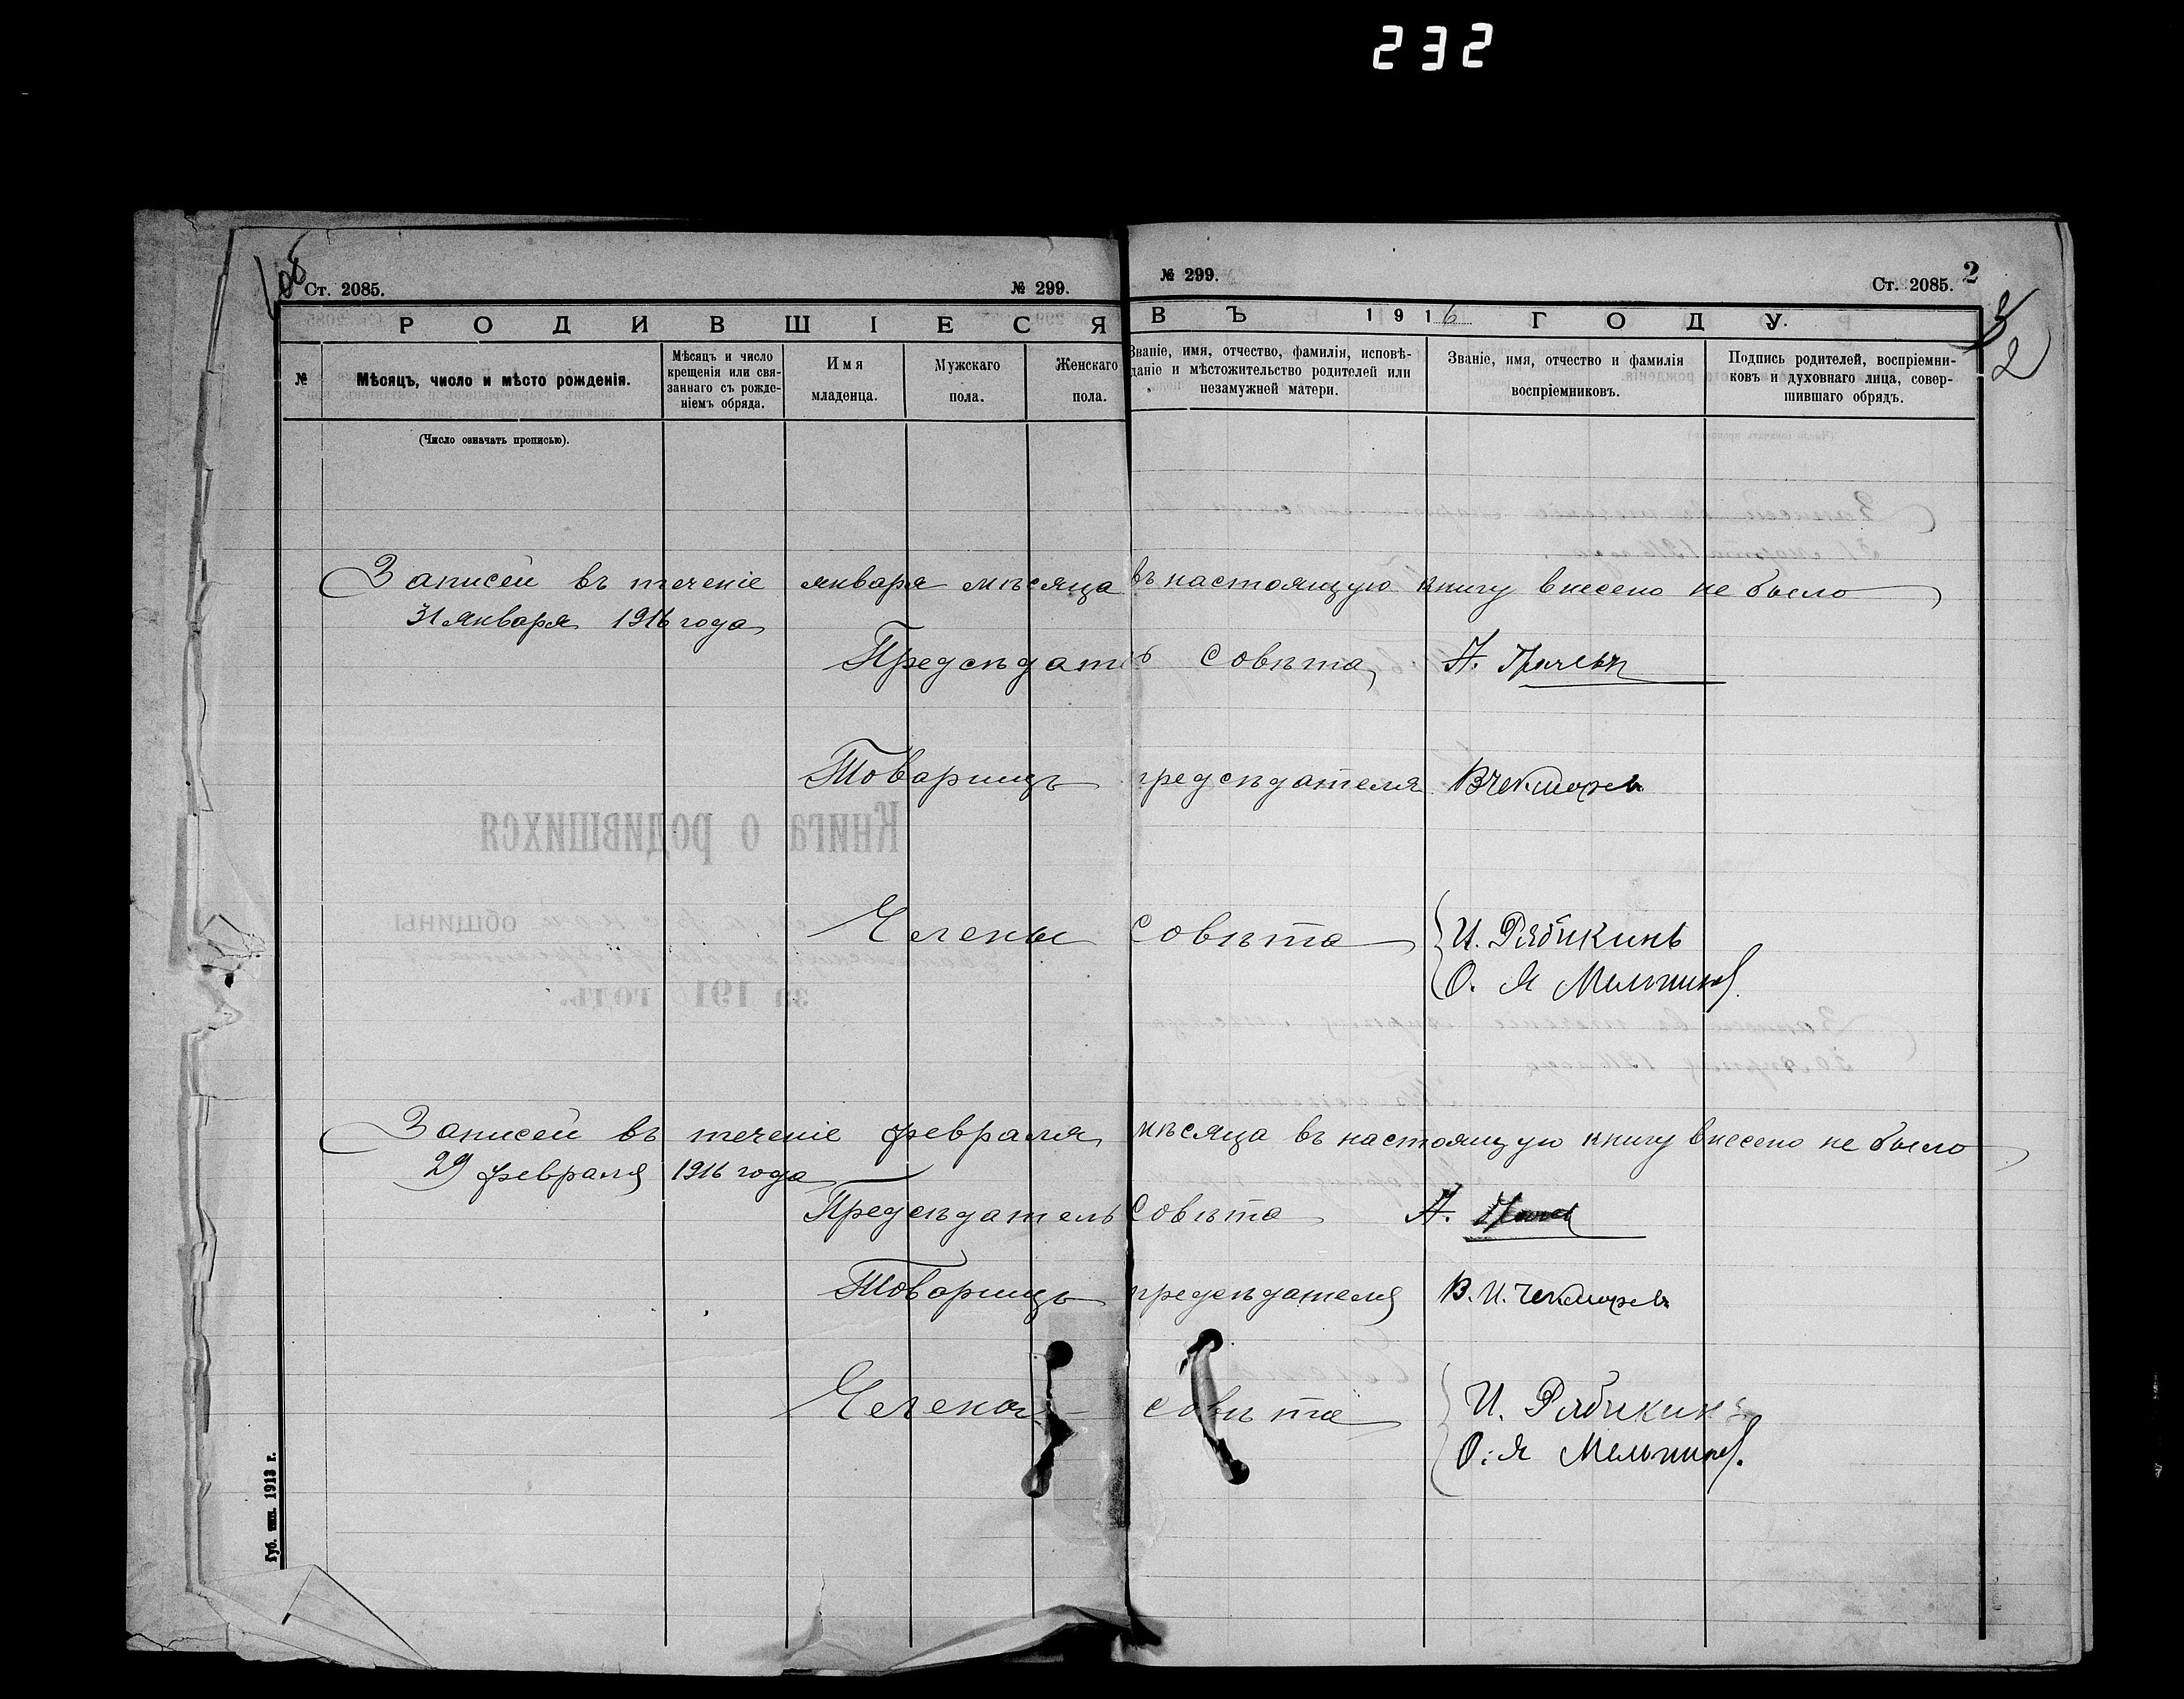 232
Ст. 2085.
№ 299.
№ 299.
Ст. 2085.
2
2
РОДИВШІЕСЯ ВЪ 1916 ГОДУ.
№
Мѣсяцъ, число и мѣсто рожденія.
Мѣсяцъ и число
крещенія или свя-
заннаго съ рожде-
ніемъ обряда.
Имя
младенца.
Мужскаго
пола.
Женскаго
пола.
Званіе, имя, отчество, фамилія, исповѣ-
даніе и мѣстожительство родителей или
незамужней матери.
Званіе, имя, отчество и фамилія
воспріемниковъ.
Подпись родителей, воспріемни-
ковъ и духовнаго лица, совер-
шившаго обрядъ.
(Число означать прописью).
Записей въ теченіе января мѣсяца въ настоящую книгу внесено не было
31 января 1916 года
Предсѣдатель Совѣта А.
Товарищъ предсѣдателя В Чекмарев
Члены Совѣта И. Рябикинъ
О. Я Мельников
Книга о родившихся
общины
за 191 годъ.
Записей въ теченіе февраля мѣсяца въ настоящую книгу внесено не было
29 февраля 1916 года
Предсѣдатель Совѣта А.
Товарищъ предсѣдателя В. И. Чекмарев
Члены совѣта И. Рябикинъ
О. Я Мельников.
Губ. тип. 1913 г.